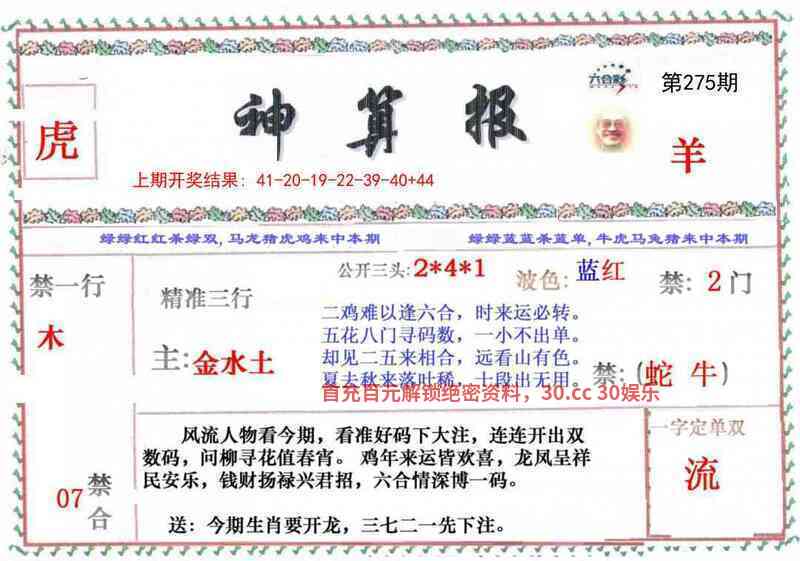 六合彩
第275期
虎
神算报
羊
上期开奖结果: 41-20-19-22-39-40+44
绿绿红红杀绿双, 马龙猪虎鸡来中本期
绿绿蓝蓝杀蓝单, 牛虎马兔猪来中本期
禁一行
木
精准三行
主: 金水土
公开三头: 2*4*1
波色: 蓝红
禁: 2门
二鸡难以逢六合，时来运必转。
五花八门寻码数，一小不出单。
却见二五来相合，远看山有色。
夏去秋来落叶稀，十段出无用。
禁: (蛇 牛)
首充百元解锁绝密资料，30.cc 30娱乐
07
禁合
风流人物看今期，看准好码下大注，连连开出双
数码，问柳寻花值春宵。 鸡年来运皆欢喜，龙凤呈祥
民安乐，钱财扬禄兴君招，六合情深博一码。
送：今期生肖要开龙，三七二一先下注。
一字定单双
流